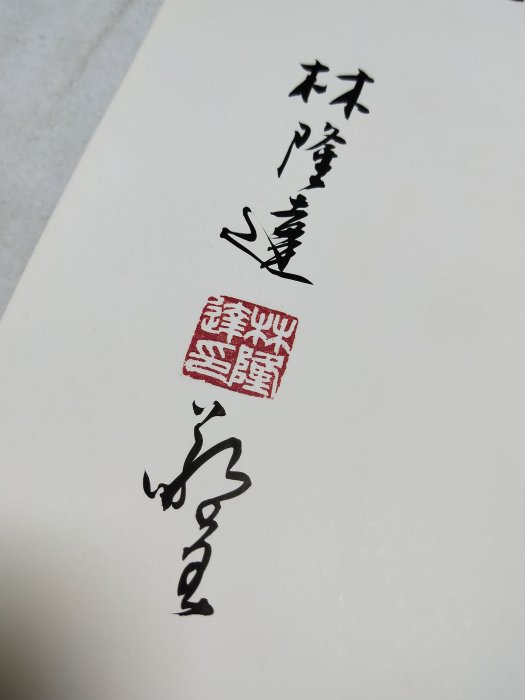 林隆達
林隆
達印
呈